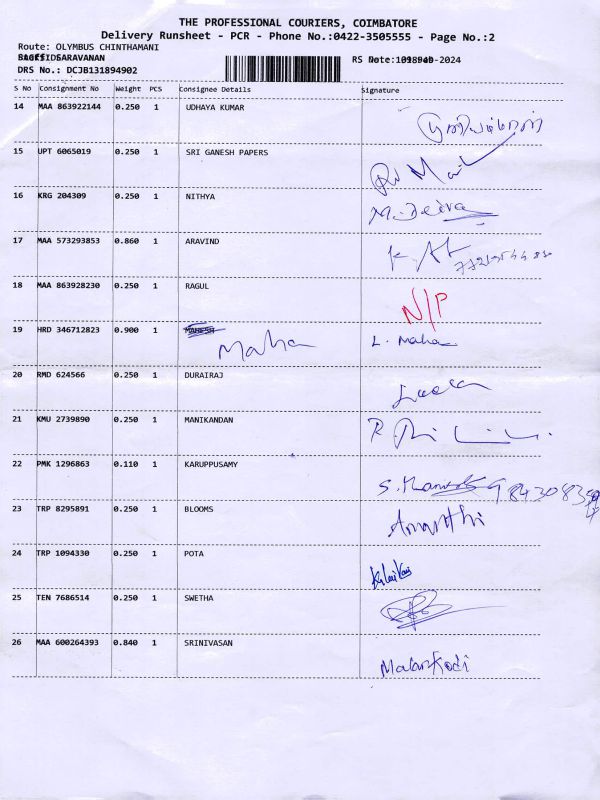 THE PROFESSIONAL COURIERS, COIMBATORE
Delivery Runsheet - PCR - Phone No.:0422-3505555 - Page No.:2
Route: OLYMBUS CHINTHAMANI
SARAVANAN
DRS No.: DCJB131894902
S No Consignment No Weight PCS Consignee Details Signature
14 MAA 863922144 0.250 1 UDHAYA KUMAR
15 UPT 6065019 0.250 1 SRI GANESH PAPERS
16 KRG 204309 0.250 1 NITHYA M. Deiva
17 MAA 573293853 0.860 1 ARAVIND
18 MAA 863928230 0.250 1 RAGUL N/P
19 HRD 346712823 0.900 1 MAHESH Maha L. Maha
20 RMD 624566 0.250 1 DURAIRAJ
21 KMU 2739890 0.250 1 MANIKANDAN
22 PMK 1296863 0.110 1 KARUPPUSAMY
23 TRP 8295891 0.250 1 BLOOMS
24 TRP 1094330 0.250 1 POTA
25 TEN 7686514 0.250 1 SWETHA
26 MAA 600264393 0.840 1 SRINIVASAN Malarkodi